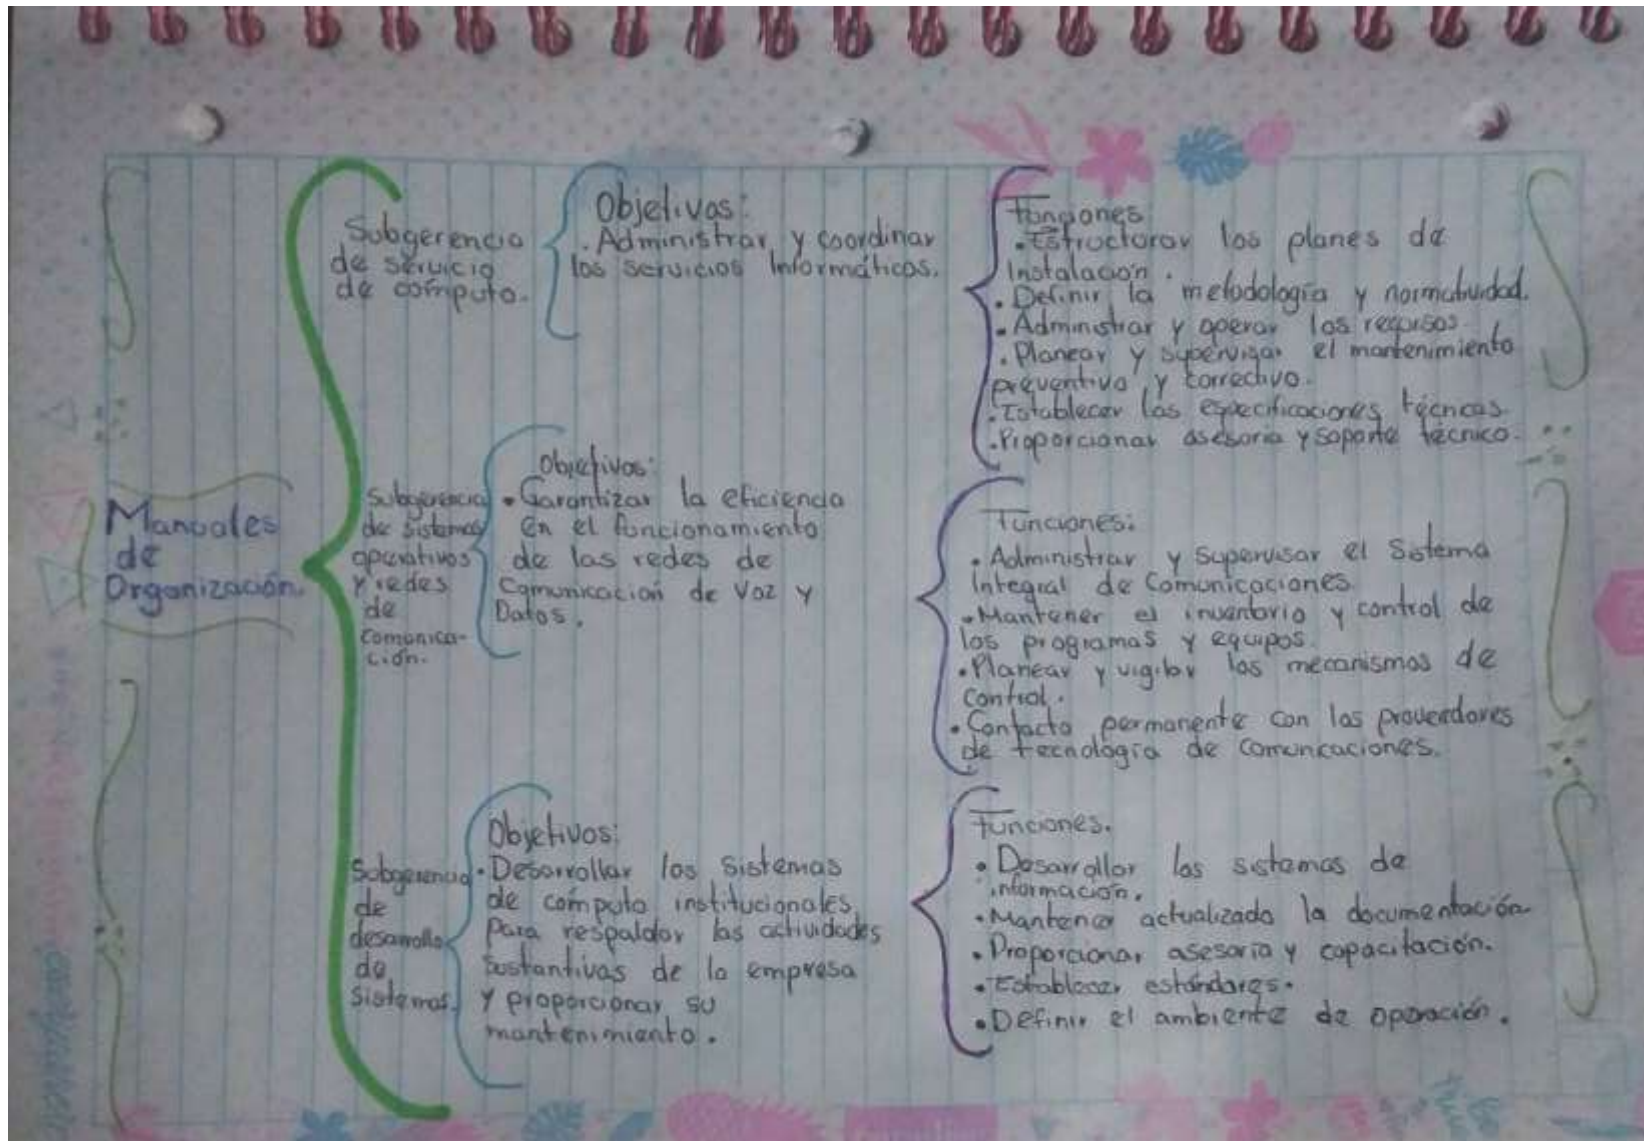 Manuales
de
Organización.
Subgerencia
de servicio
de cómputo.
Objetivos:
. Administrar y coordinar
los servicios Informáticos.
Funciones
. Estructurar los planes de
Instalación.
. Definir la metodología y normatividad.
. Administrar y operar los recursos.
. Planear y supervisar el mantenimiento
preventivo y correctivo.
. Establecer las especificaciones técnicas.
. Proporcionar asesoría y soporte técnico.
Subgerencia
de sistemas
operativos
y redes
de
comunica-
ción.
Objetivos:
• Garantizar la eficiencia
en el funcionamiento
de las redes de
Comunicación de Voz y
Datos.
Funciones:
. Administrar y Supervisar el Sistema
Integral de Comunicaciones.
. Mantener el inventario y control de
los programas y equipos.
. Planear y vigilar los mecanismos de
Control.
• Contacto permanente con los proveedores
de tecnología de comunicaciones.
Subgerencia
de
desarrollo
de
sistemas.
Objetivos:
. Desarrollar los Sistemas
de cómputo institucionales
para respaldar las actividades
Sustantivas de la empresa
y proporcionar su
mantenimiento.
Funciones.
• Desarrollar los sistemas de
información.
. Mantener actualizado la documentación
. Proporcionar asesoría y capacitación.
. Establecer estándares.
. Definir el ambiente de operación.